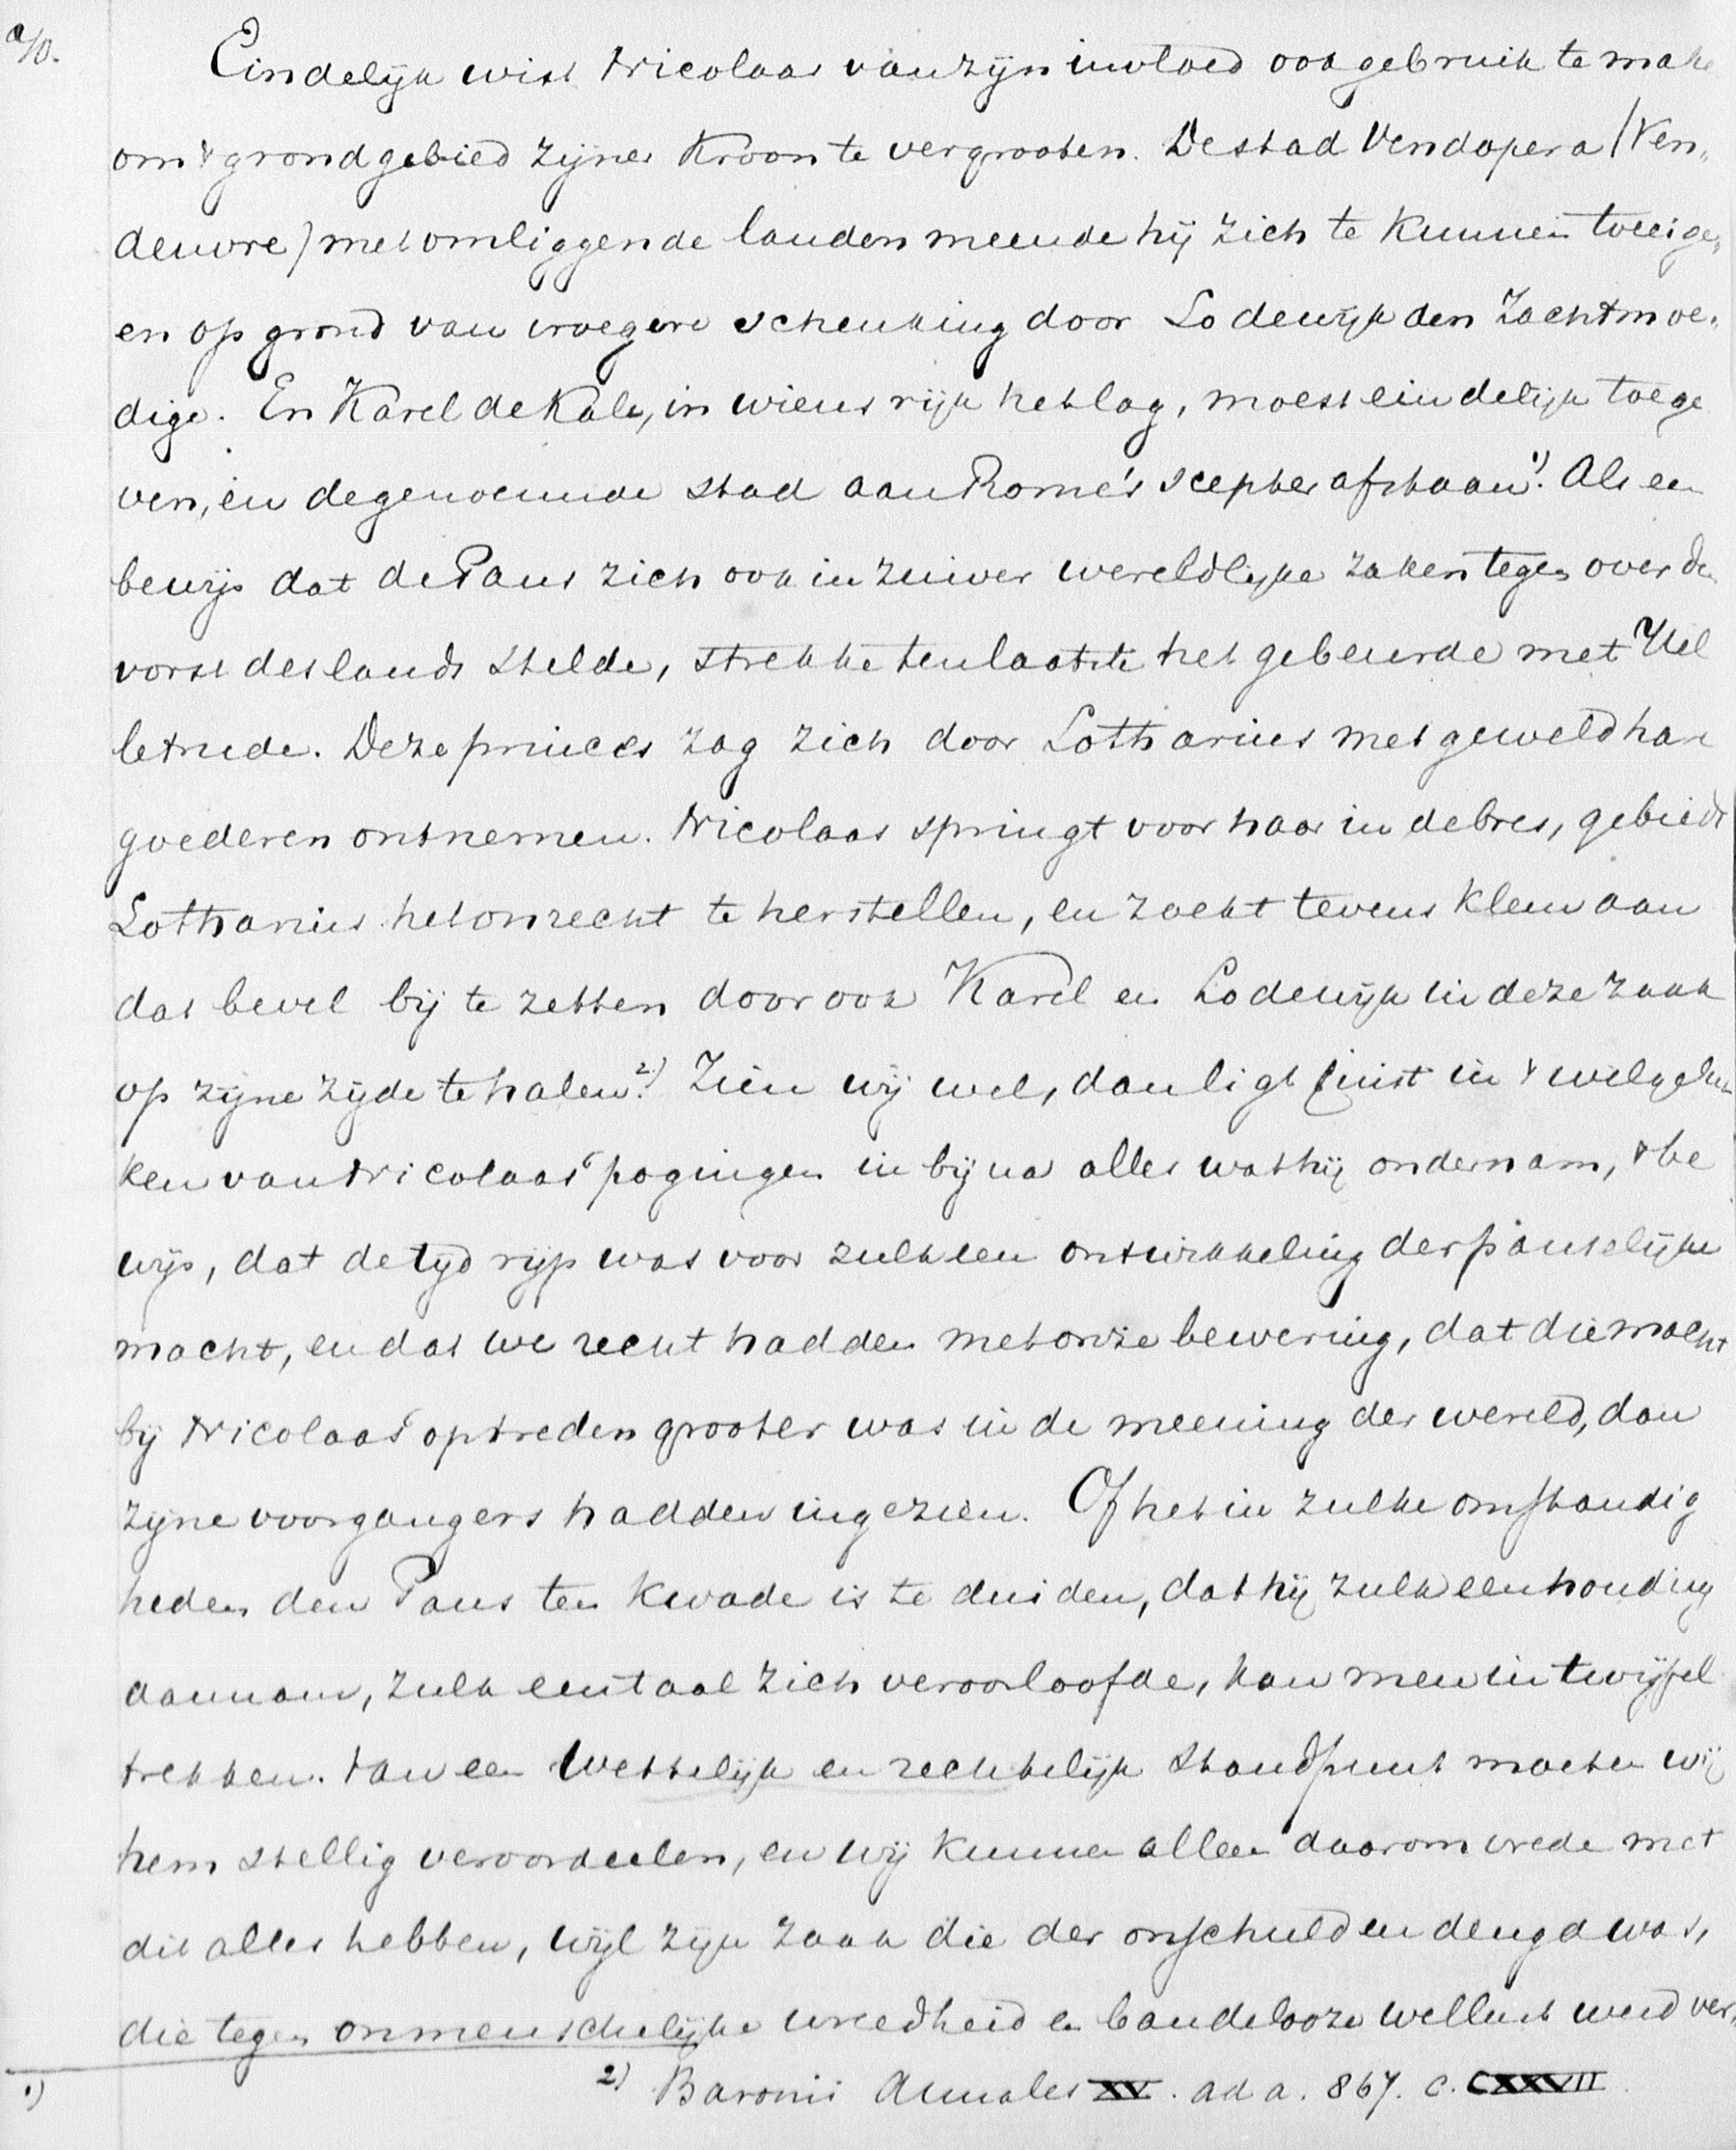 a/0.
Eindelijk wist Nicolaas van zijn invloed ook gebruik te make
om 't grondgebied zijner Kroon te vergrooten. De stad Vendopera (Ven„
deuvre) met omliggende landen meende hij zich te kunnen toeige„
en op grond van vroegere schenking door Lodewijk den Zachtmoe„
dige. En Karel de Kale, in wiens rijk het lag, moest eindelijk toege
ven, en de genoemde stad aan Rome's scepter afstaan 1). Als een
bewijs dat de Paus zich ook in zuiver wereldlijke zaken tegenover den
vorst des lands stelde, strekke ten laatste het gebeurde met Hel
letrude. Deze princes zag zich door Lotharius met geweld hare
goederen ontnemen. Nicolaas springt voor haar in de bres, gebiedt
Lotharius het onrecht te herstellen, en zoekt tevens klem aan
dat bevel bij te zetten door ook Karel en Lodewijk in deze zaak
op zijne zijde te halen 2). Zien wij wel, dan ligt juist in 't welgeluk
ken van Nicolaas' pogingen in bijna alles wat hij ondernam, 't be
wijs, dat de tijd rijp was voor zulk een ontwikkeling der pauselijke
macht, en dat we recht hadden met onze bewering, dat die macht
bij Nicolaas' optreden grooter was in de meening der wereld, dan
zijne voorgangers hadden ingezien. Of het in zulke omstandig
heden den Paus ten kwade is te duiden, dat hij zulk een houding
aannam, zulk een taal zich veroorloofde, kan men in twijfel
trekken. Van een wettelijk en rechtelijk standpunt moeten wij
hem stellig veroordeelen, en wij kunnen alleen daarom vrede met
dit alles hebben, wijl zijn zaak die der onschuld en deugd was,
die tegen onmenschelijke wreedheid en bandelooze wellust werd ver„
1)
2) Baronii Annales XV. ad a. 867. c. CXXVII.